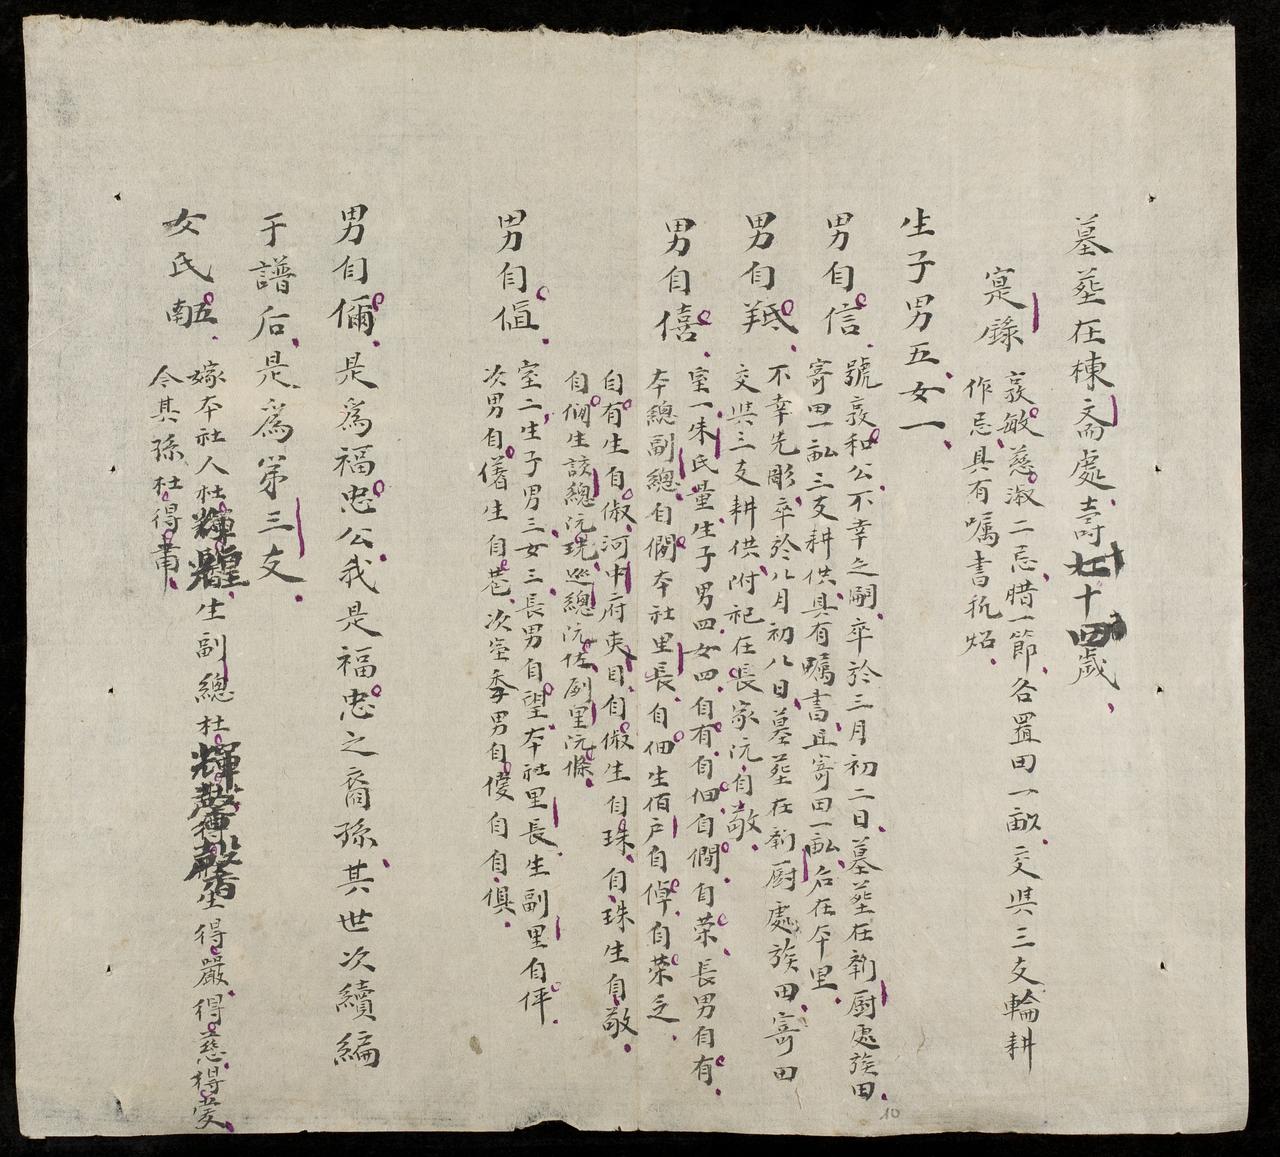 墓塟在棟斎處壽七十四歲
寔錄
哀敏慈淑二忌腊一節各置田一畝交與三支輪耕
作忌具有囑書執炤
生子男五女一
男自信
號敦和公不幸乏嗣卒於三月初二日墓塟在厨處族田
寄田一畝三支耕供具有囑書且寄田一畝后在本里
男自羝
不幸先彫卒於八月初八日墓塟在厨處族田寄田
交與三支耕供附祀在長家沅自敬
男自僖
室一朱氏量生子男四女四自有自佃自僩自荣長男自有
本總副總自僩本社里長自佃生佰户自倬自荣乏
自有生自俶河中府吏目自俶生自珠自珠生自敬
自僩生該總沅珖巡總沅佐副里沅條
男自值
室二生子男三女三長男自望本社里長生副里自伻
次男自僐生自巷次室季男自儍自自俱
男自儞是爲福忠公我是福忠之裔孫其世次續編
于譜后是爲第三支
女氏南五
嫁本社人杜輝煌生副總杜輝馨生得嚴得慈得愛
令其孫杜得甫
10